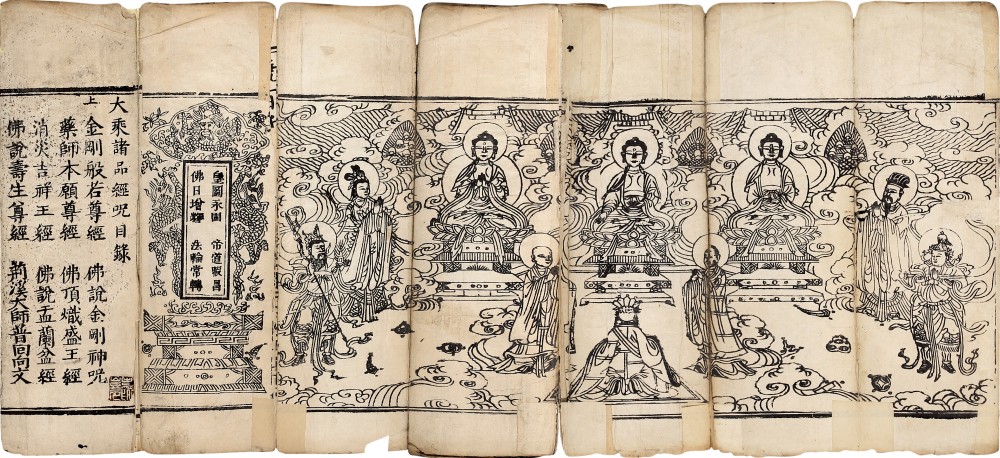 皇圖永固 帝道遐昌
佛日增輝 法輪常轉
大乘諸品經咒目錄
上 金剛般若尊經 佛說金剛神咒
藥師本願尊經 佛頂熾盛王經
消灾吉祥王經 佛說盂蘭盆經
佛說壽生尊經 荊溪大師普回向文